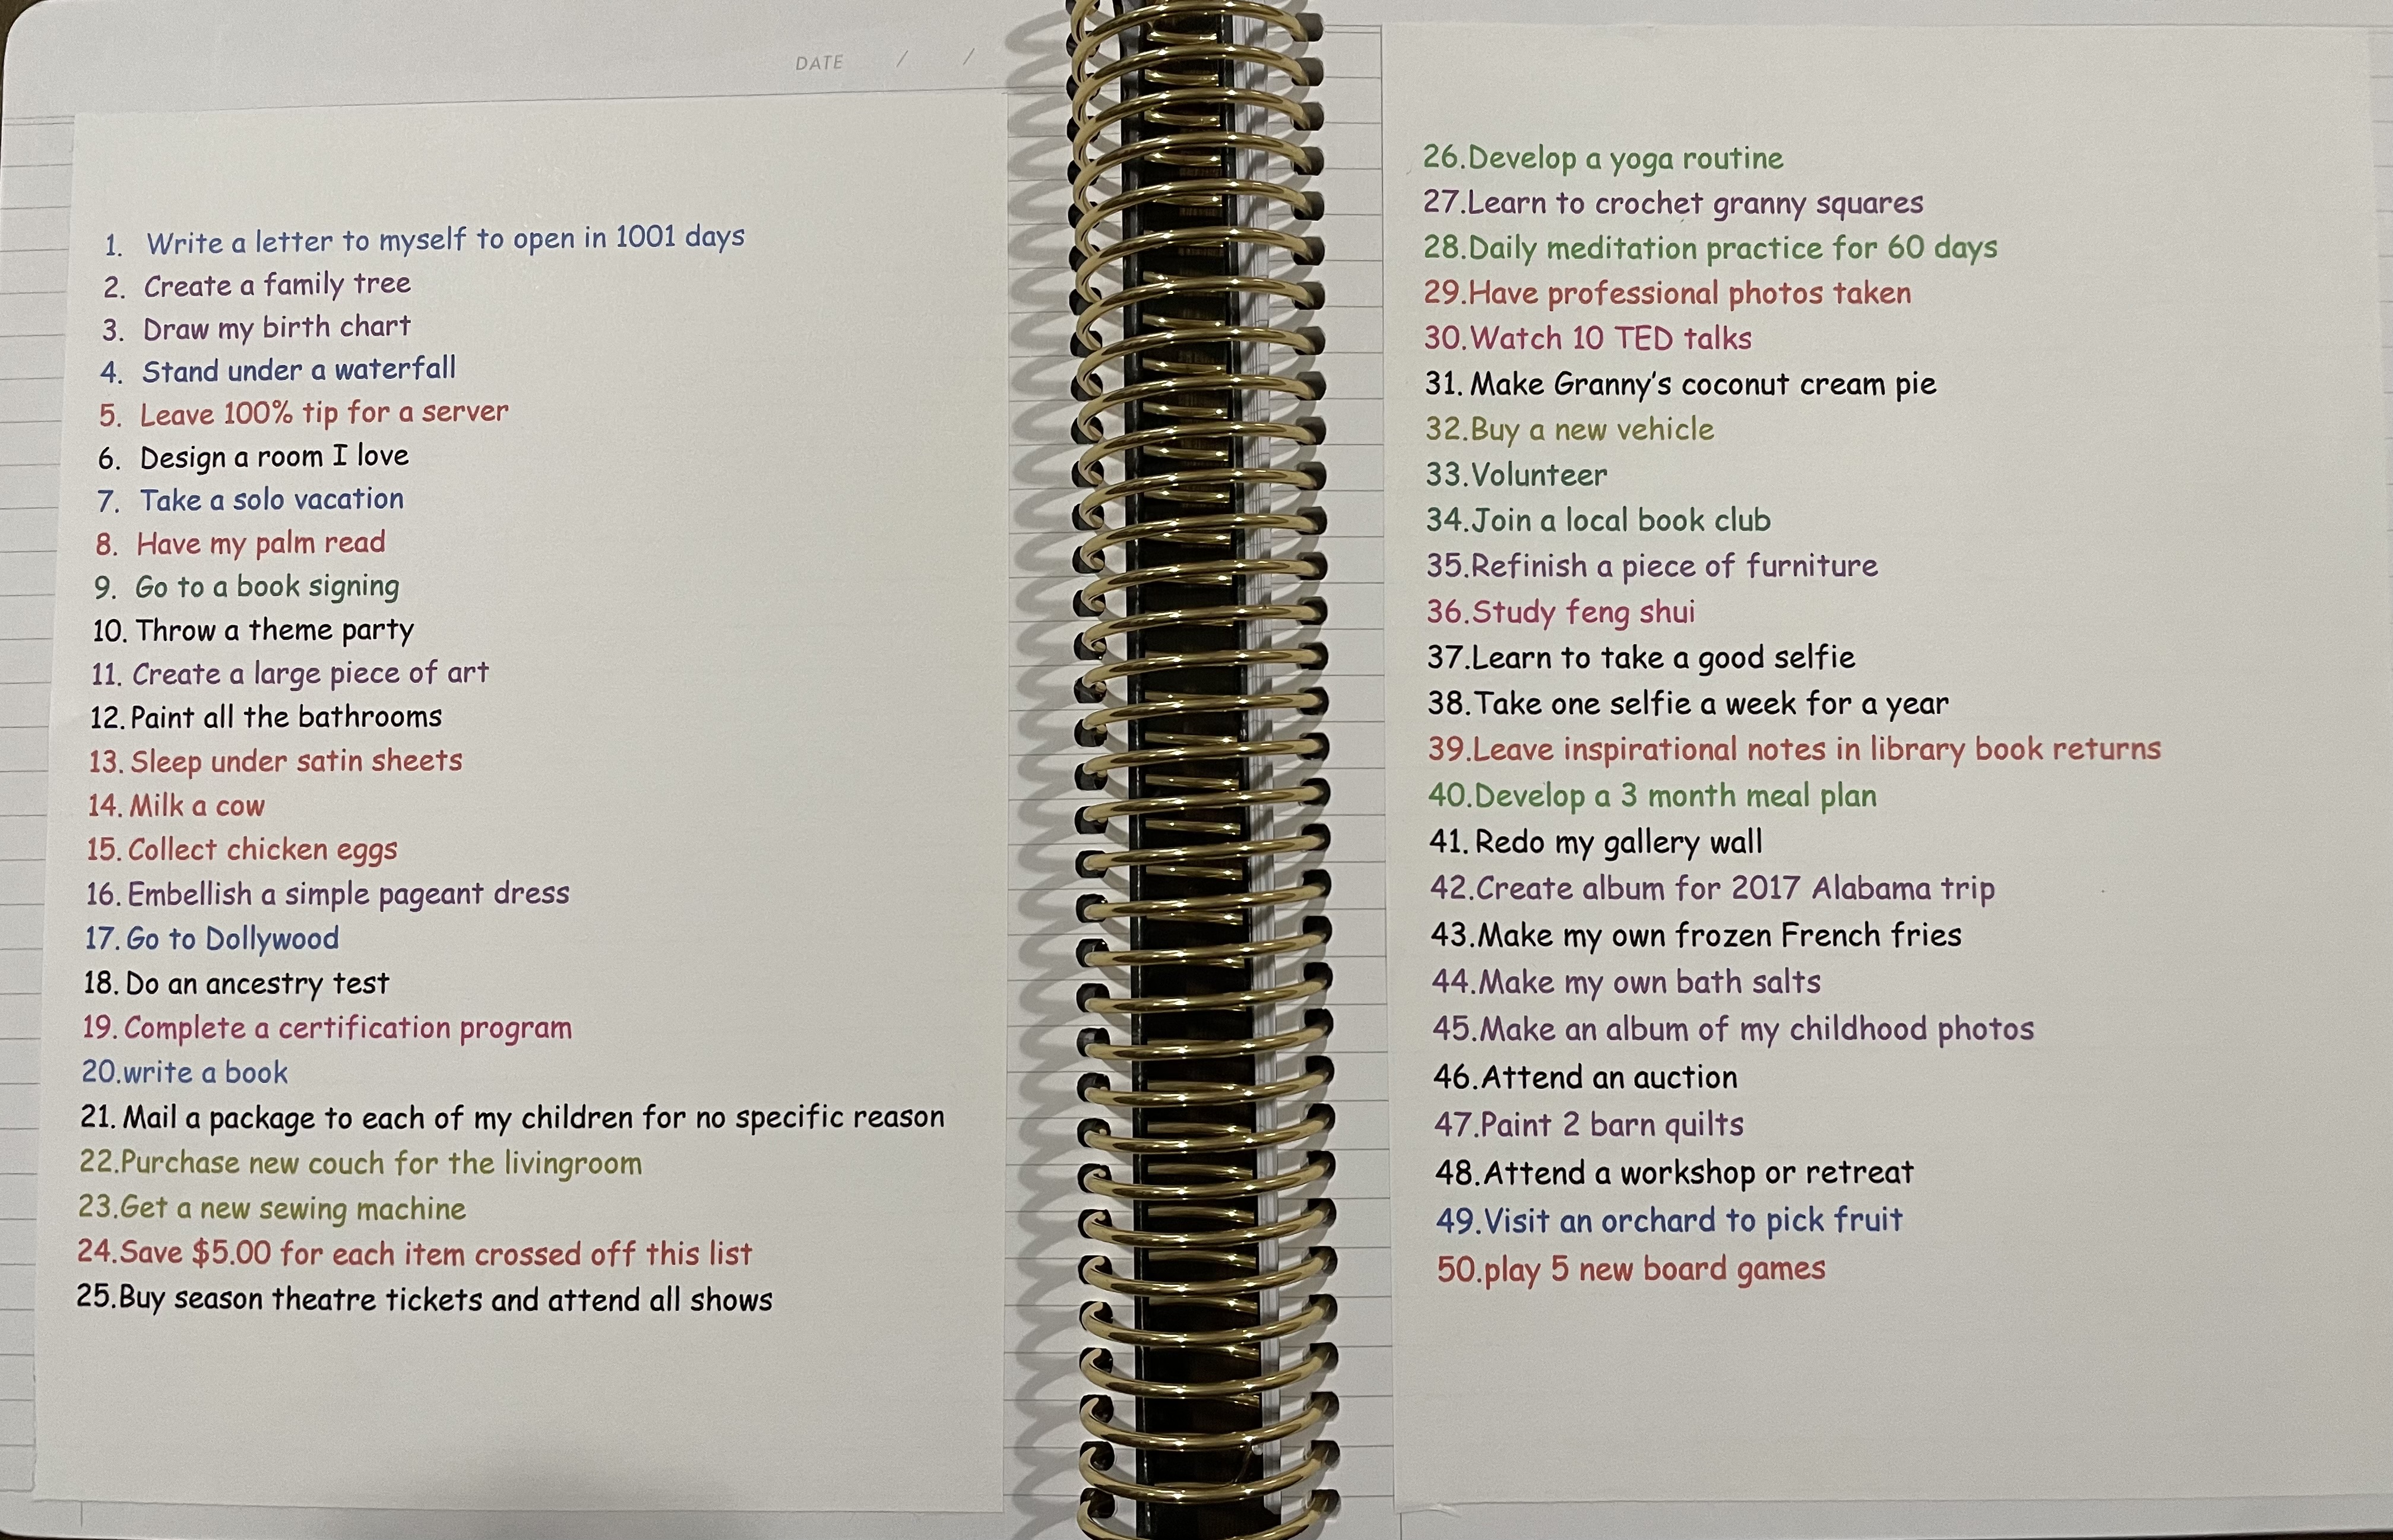 DATE / /
1. Write a letter to myself to open in 1001 days
2. Create a family tree
3. Draw my birth chart
4. Stand under a waterfall
5. Leave 100% tip for a server
6. Design a room I love
7. Take a solo vacation
8. Have my palm read
9. Go to a book signing
10. Throw a theme party
11. Create a large piece of art
12. Paint all the bathrooms
13. Sleep under satin sheets
14. Milk a cow
15. Collect chicken eggs
16. Embellish a simple pageant dress
17. Go to Dollywood
18. Do an ancestry test
19. Complete a certification program
20.write a book
21. Mail a package to each of my children for no specific reason
22.Purchase new couch for the livingroom
23.Get a new sewing machine
24.Save $5.00 for each item crossed off this list
25.Buy season theatre tickets and attend all shows
26.Develop a yoga routine
27.Learn to crochet granny squares
28.Daily meditation practice for 60 days
29.Have professional photos taken
30.Watch 10 TED talks
31. Make Granny's coconut cream pie
32.Buy a new vehicle
33.Volunteer
34.Join a local book club
35.Refinish a piece of furniture
36.Study feng shui
37.Learn to take a good selfie
38.Take one selfie a week for a year
39.Leave inspirational notes in library book returns
40.Develop a 3 month meal plan
41. Redo my gallery wall
42.Create album for 2017 Alabama trip
43.Make my own frozen French fries
44.Make my own bath salts
45.Make an album of my childhood photos
46.Attend an auction
47.Paint 2 barn quilts
48.Attend a workshop or retreat
49.Visit an orchard to pick fruit
50.play 5 new board games